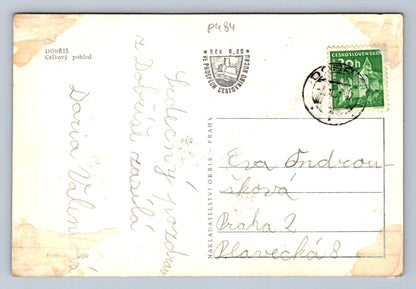 P484
DOBŘÍŠ
Celkový pohled
Kčs 0,20
VE PROSPĚCH CESTOVNÍHO RUCHU
ČESKOSLOVENSKO
30h
Srdečný pozdrav
z Dobříše zasílá
Daria
NAKLADATELSTVÍ ORBIS - PRAHA
Eva Androu-
šková
Praha 2
Plavecká 8